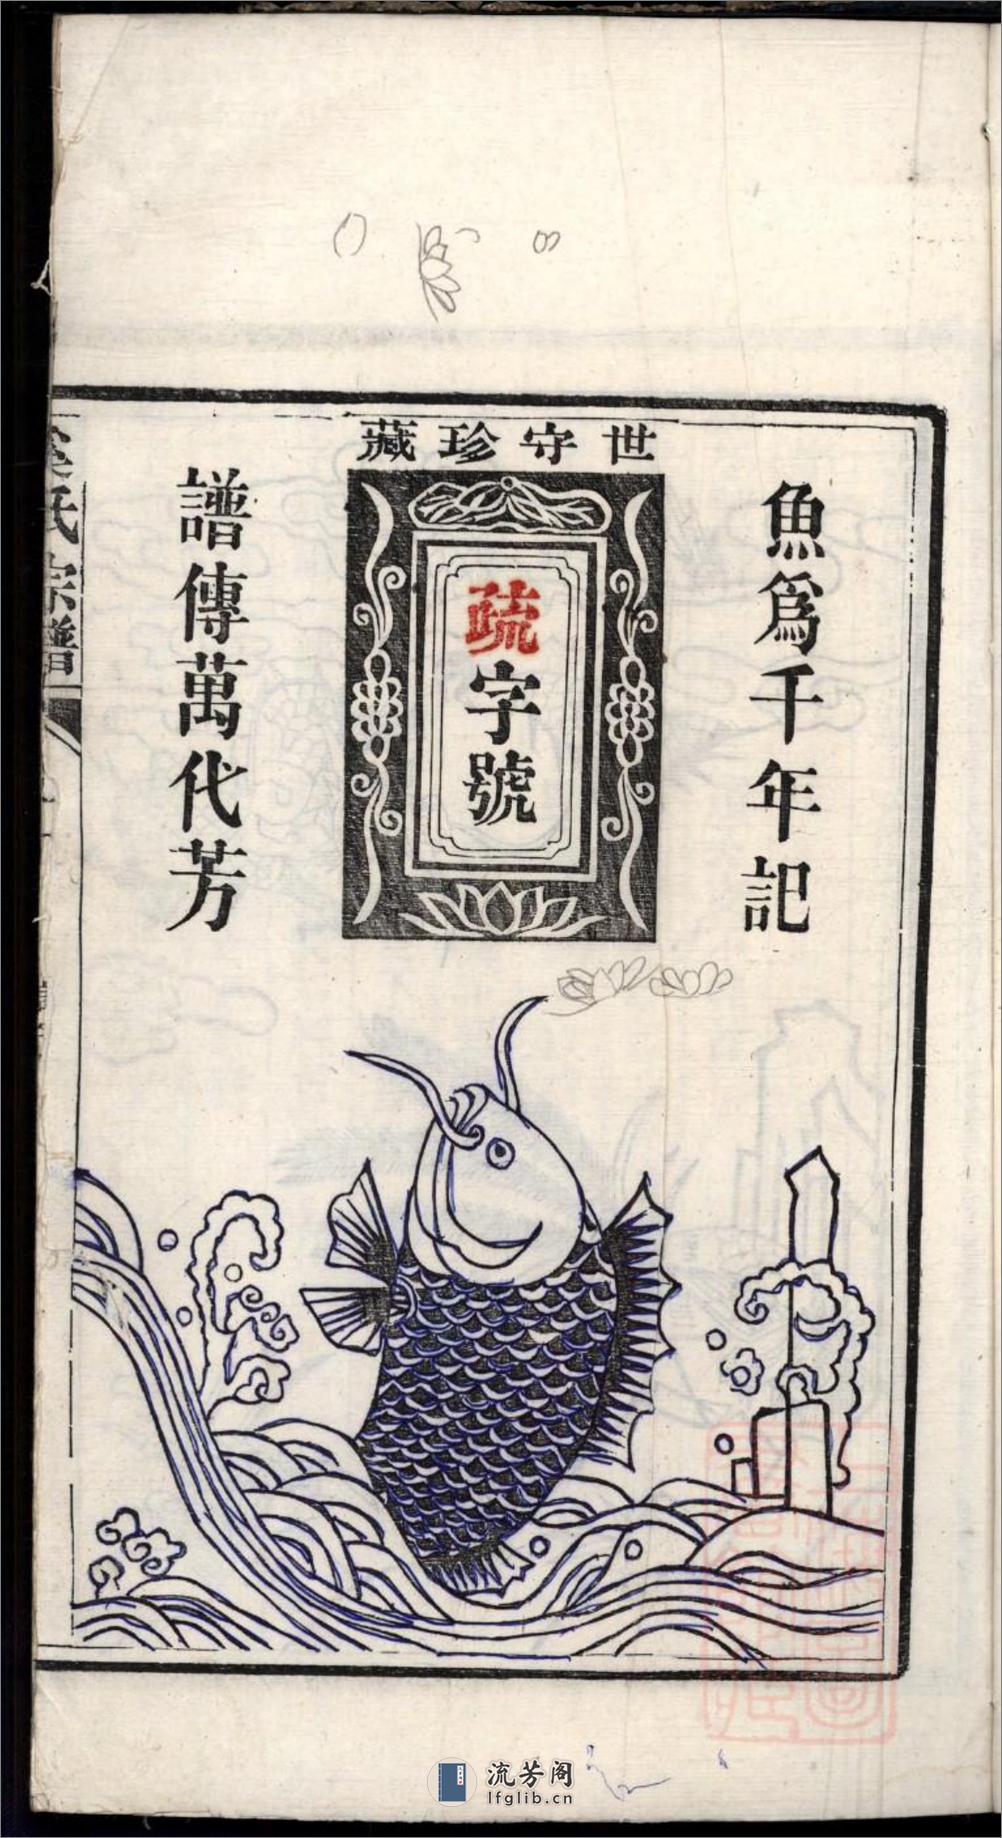 世守珍藏
魚爲千年記
疏字號
譜傳萬代芳
氏宗譜
流芳阁
lfglib.cn